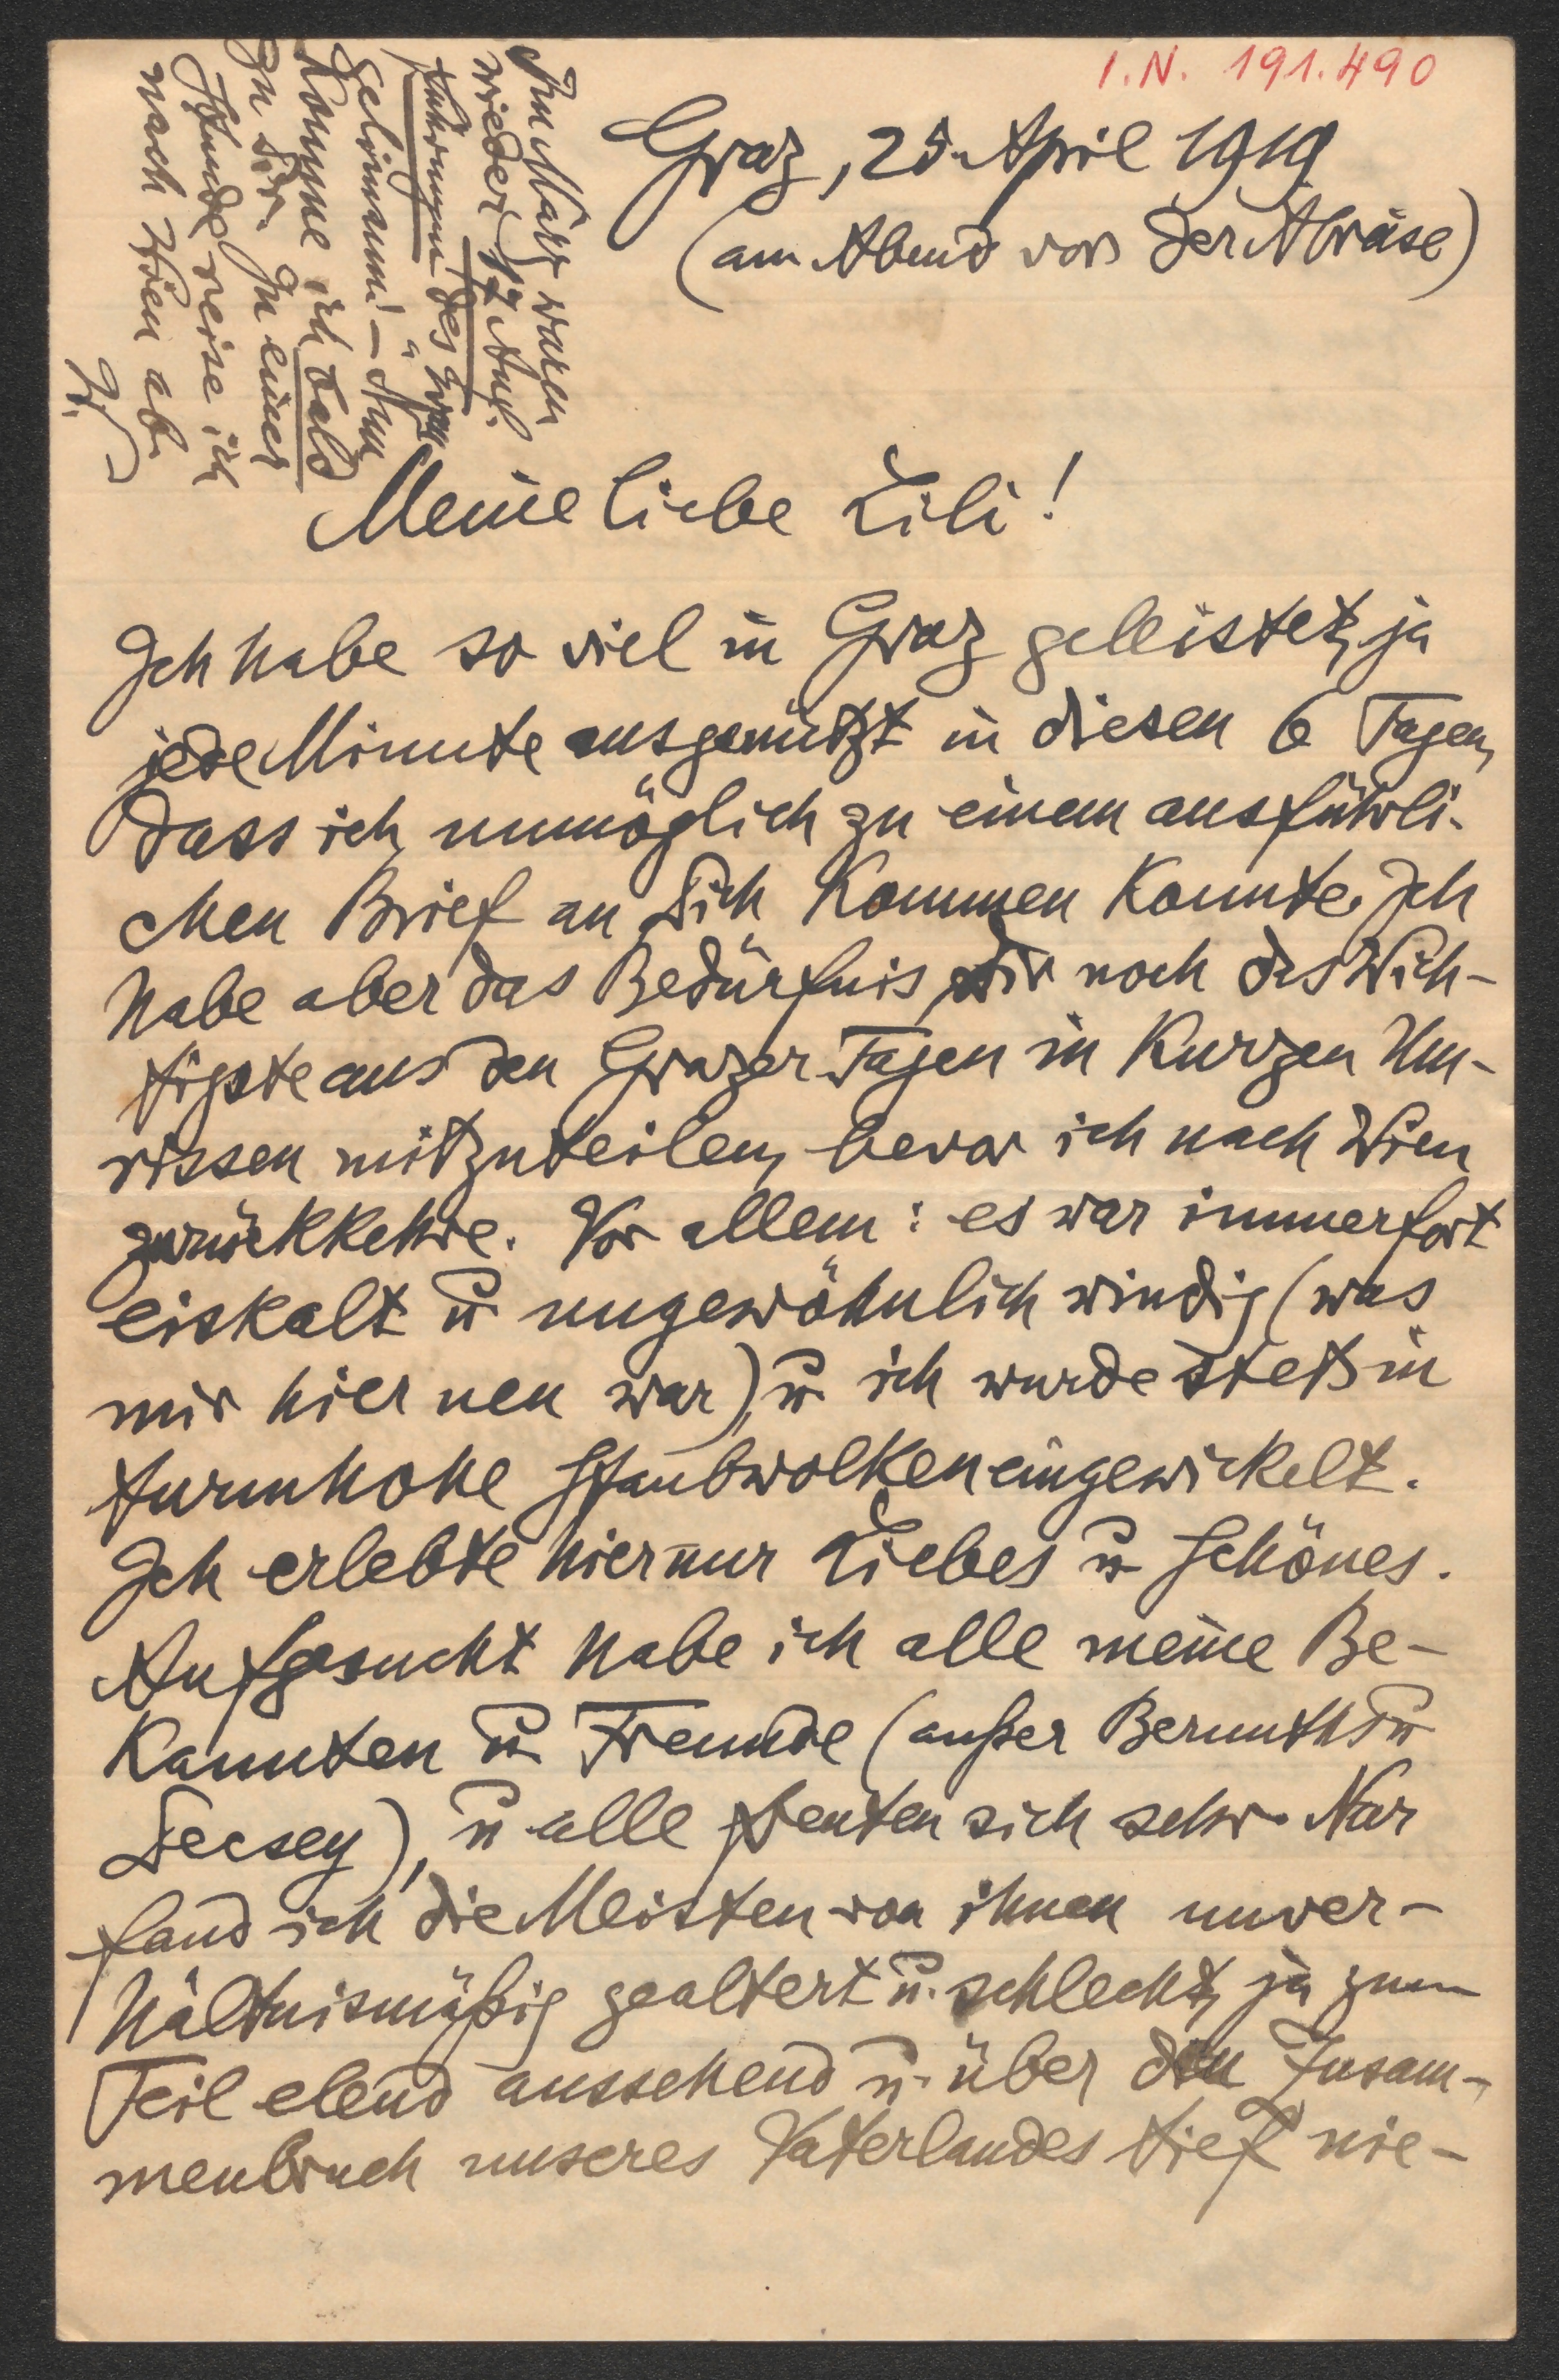 I.N. 191.490
Graz, 25. April 1919
(am Abend vor der Abreise)
Im März waren
wieder 17 Auf-
führungen des
Gelinsum! – Nun
komme ich bald
zu Dir. In einer
Stunde reise ich
nach Wien ab.
Meine liebe Lili!
Ich habe so viel in Graz geleistet, ja
jede Minute ausgenützt in diesen 6 Tagen,
dass ich unmöglich zu einem ausführli-
chen Brief an Dich kommen konnte. Ich
habe aber das Bedürfnis, Dir noch das Wich-
tigste aus den Grazer Tagen in kurzen Um-
rissen mitzuteilen, bevor ich nach Wien
zurückkehre. Vor allem: es war immerfort
eiskalt u ungewöhnlich windig (was
mir hier neu war), u ich wurde stets in
turmhohe Staubwolken eingewickelt.
Ich erlebte hier nur Liebes u Schönes.
Aufgesucht habe ich alle meine Be-
kannten u Freunde (außer Bernuths u
Decsey), u alle freuten sich sehr. Nur
fand ich die Meisten von ihnen unver-
hältnismäßig gealtert u. schlecht, ja zum
Teil elend aussehend u. über den Zusam-
menbruch unseres Vaterlandes tief nie-